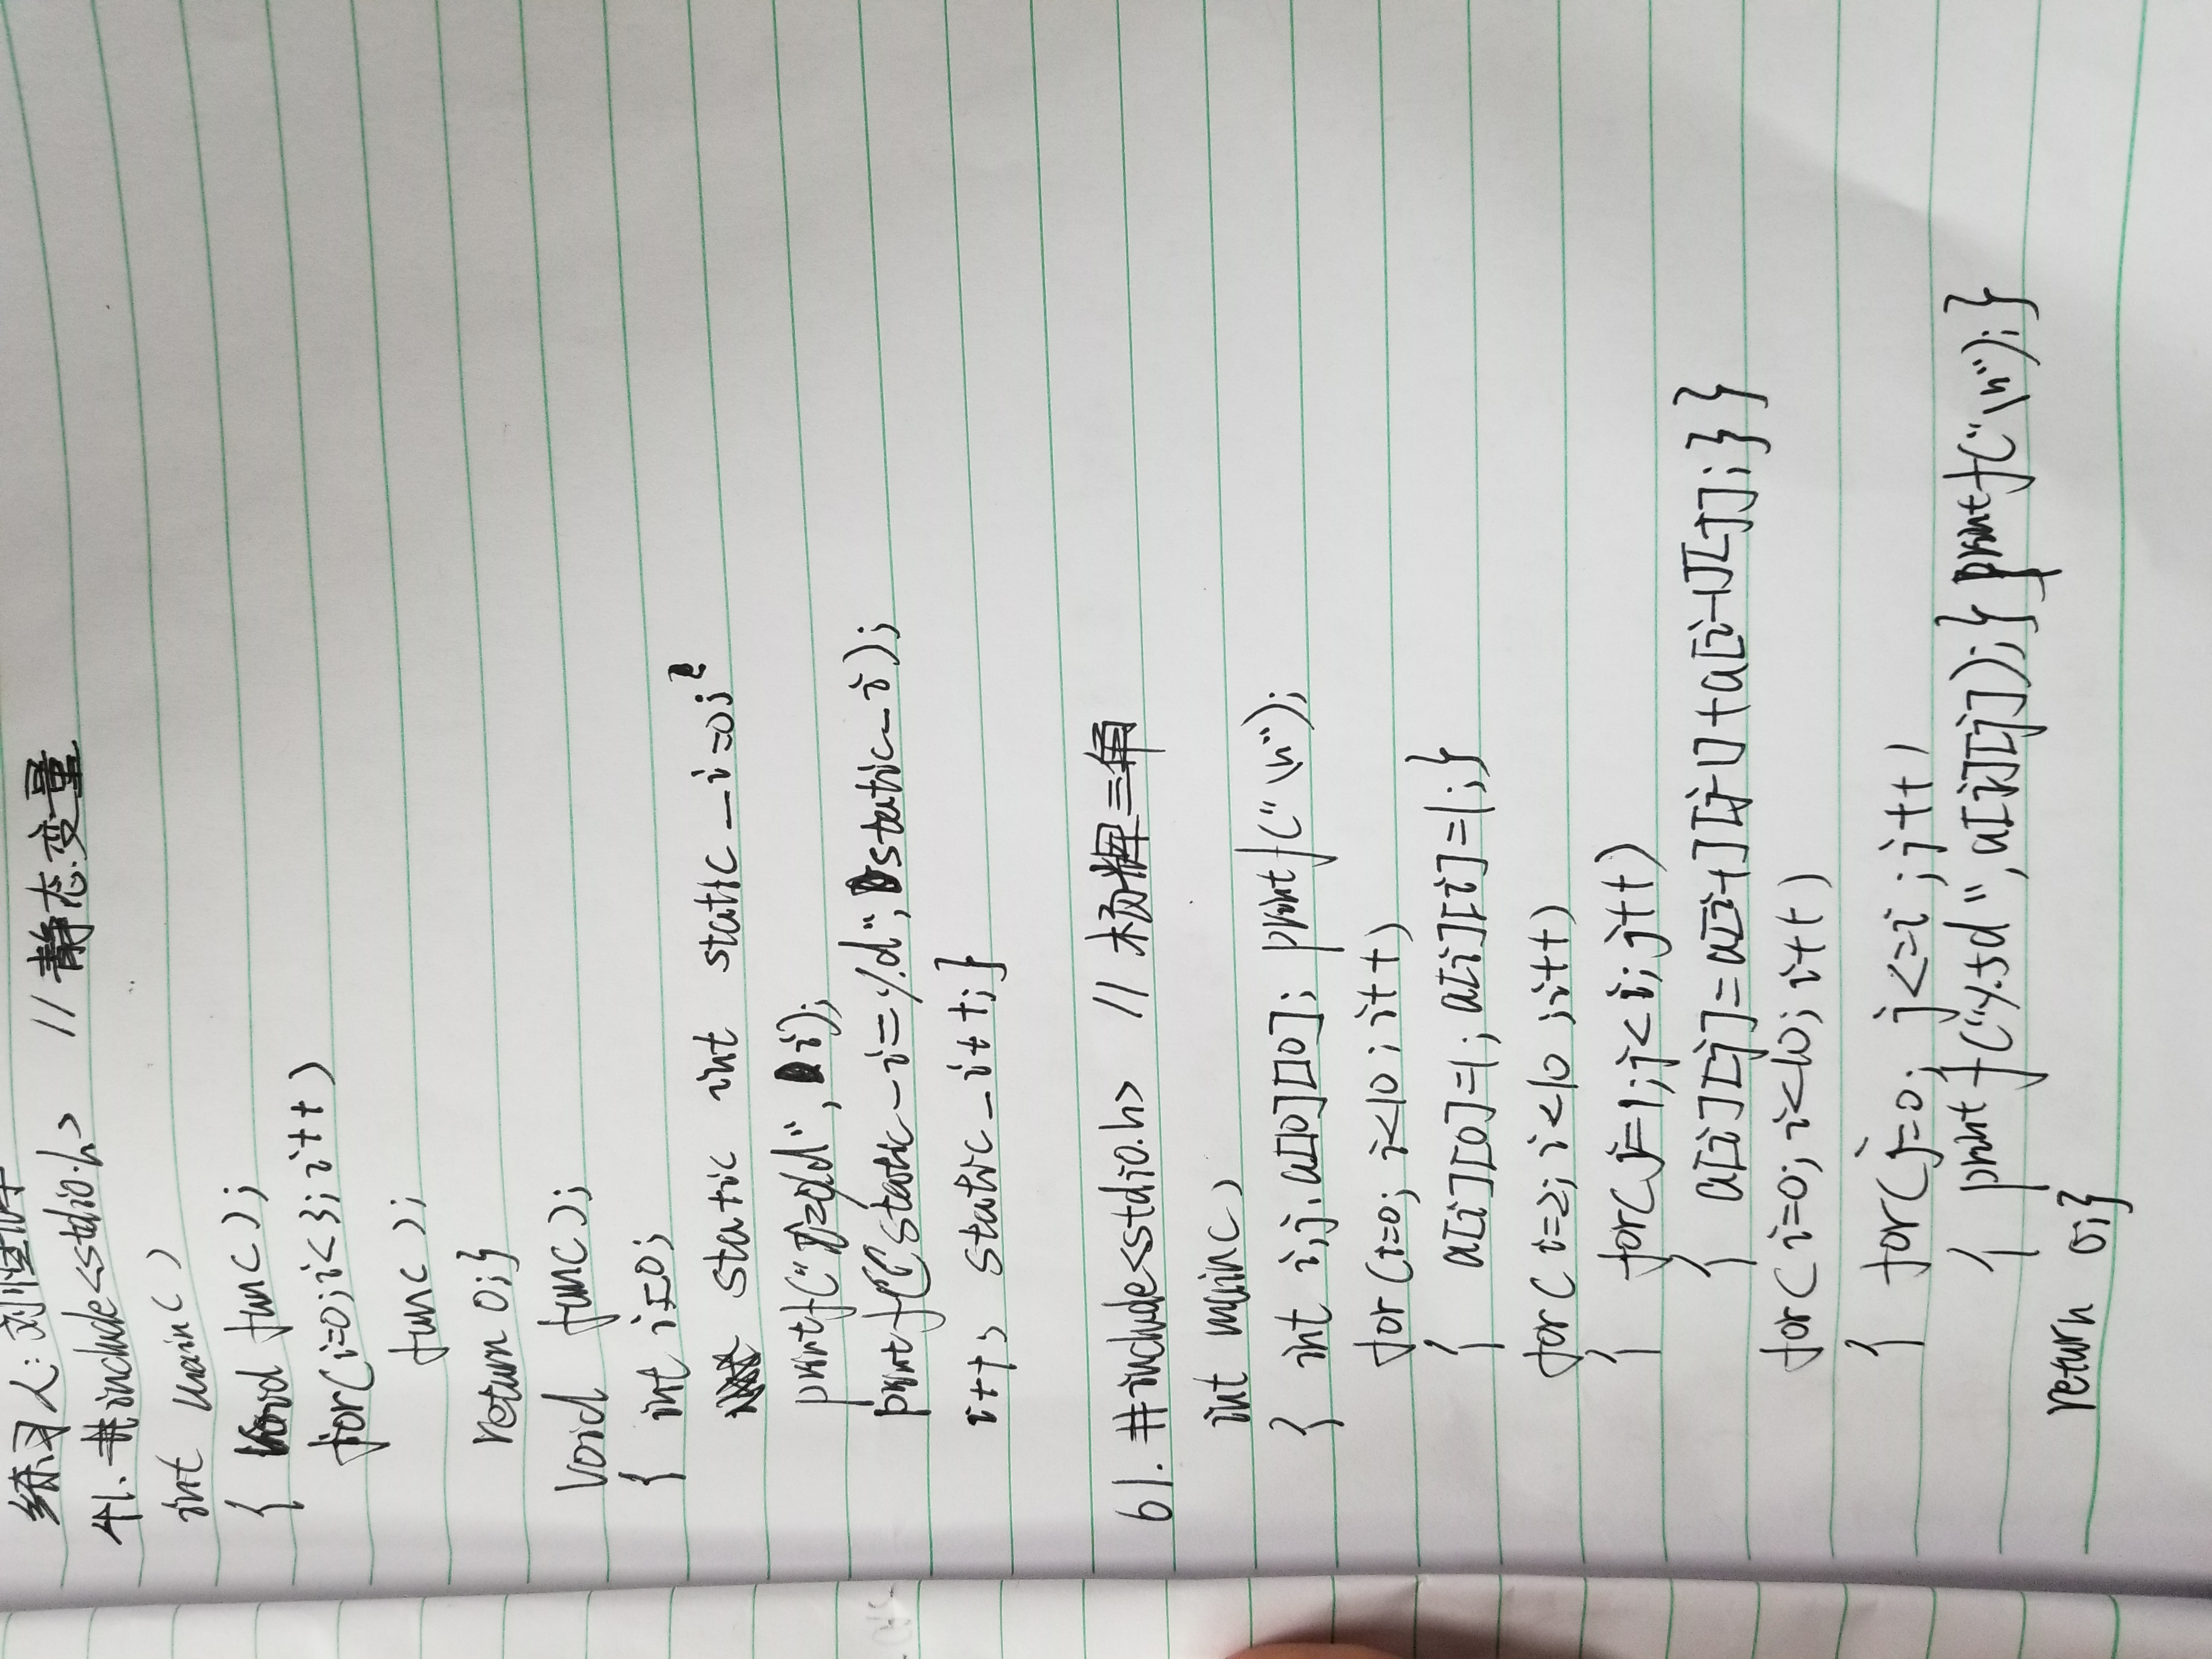 练习人: 刘
41. #include<stdio.h> // 静态变量
int main()
{ void fun();
for(i=0;i<3;i++)
fun();
return 0;}
void fun();
{ int i=0;
static int static_i=0;
printf("i=%d", i);
printf("static_i=%d", static_i);
i++; static_i++;}
61. #include<stdio.h> // 杨辉三角
int main()
{ int i,j,a[10][10]; printf("\n");
for(i=0; i<10; i++)
{ a[i][0]=1; a[i][i]=1;}
for(i=2; i<10; i++)
{ for(j=1;j<i;j++)
{ a[i][j]=a[i-1][j-1]+a[i-1][j];}}
for(i=0; i<10; i++)
{ for(j=0; j<=i; j++)
{ printf("%5d", a[i][j]);} printf("\n");}
return 0;}